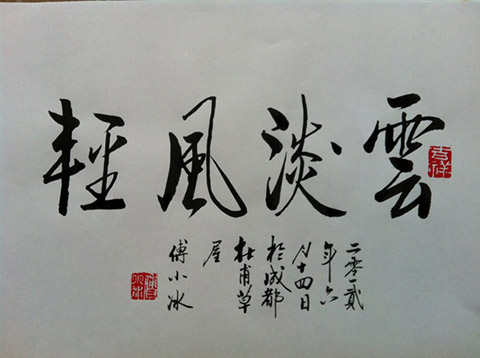 雲淡風輕
吉祥
二零一貳
年六
月十四日
於成都
杜甫草
屋
傅小冰